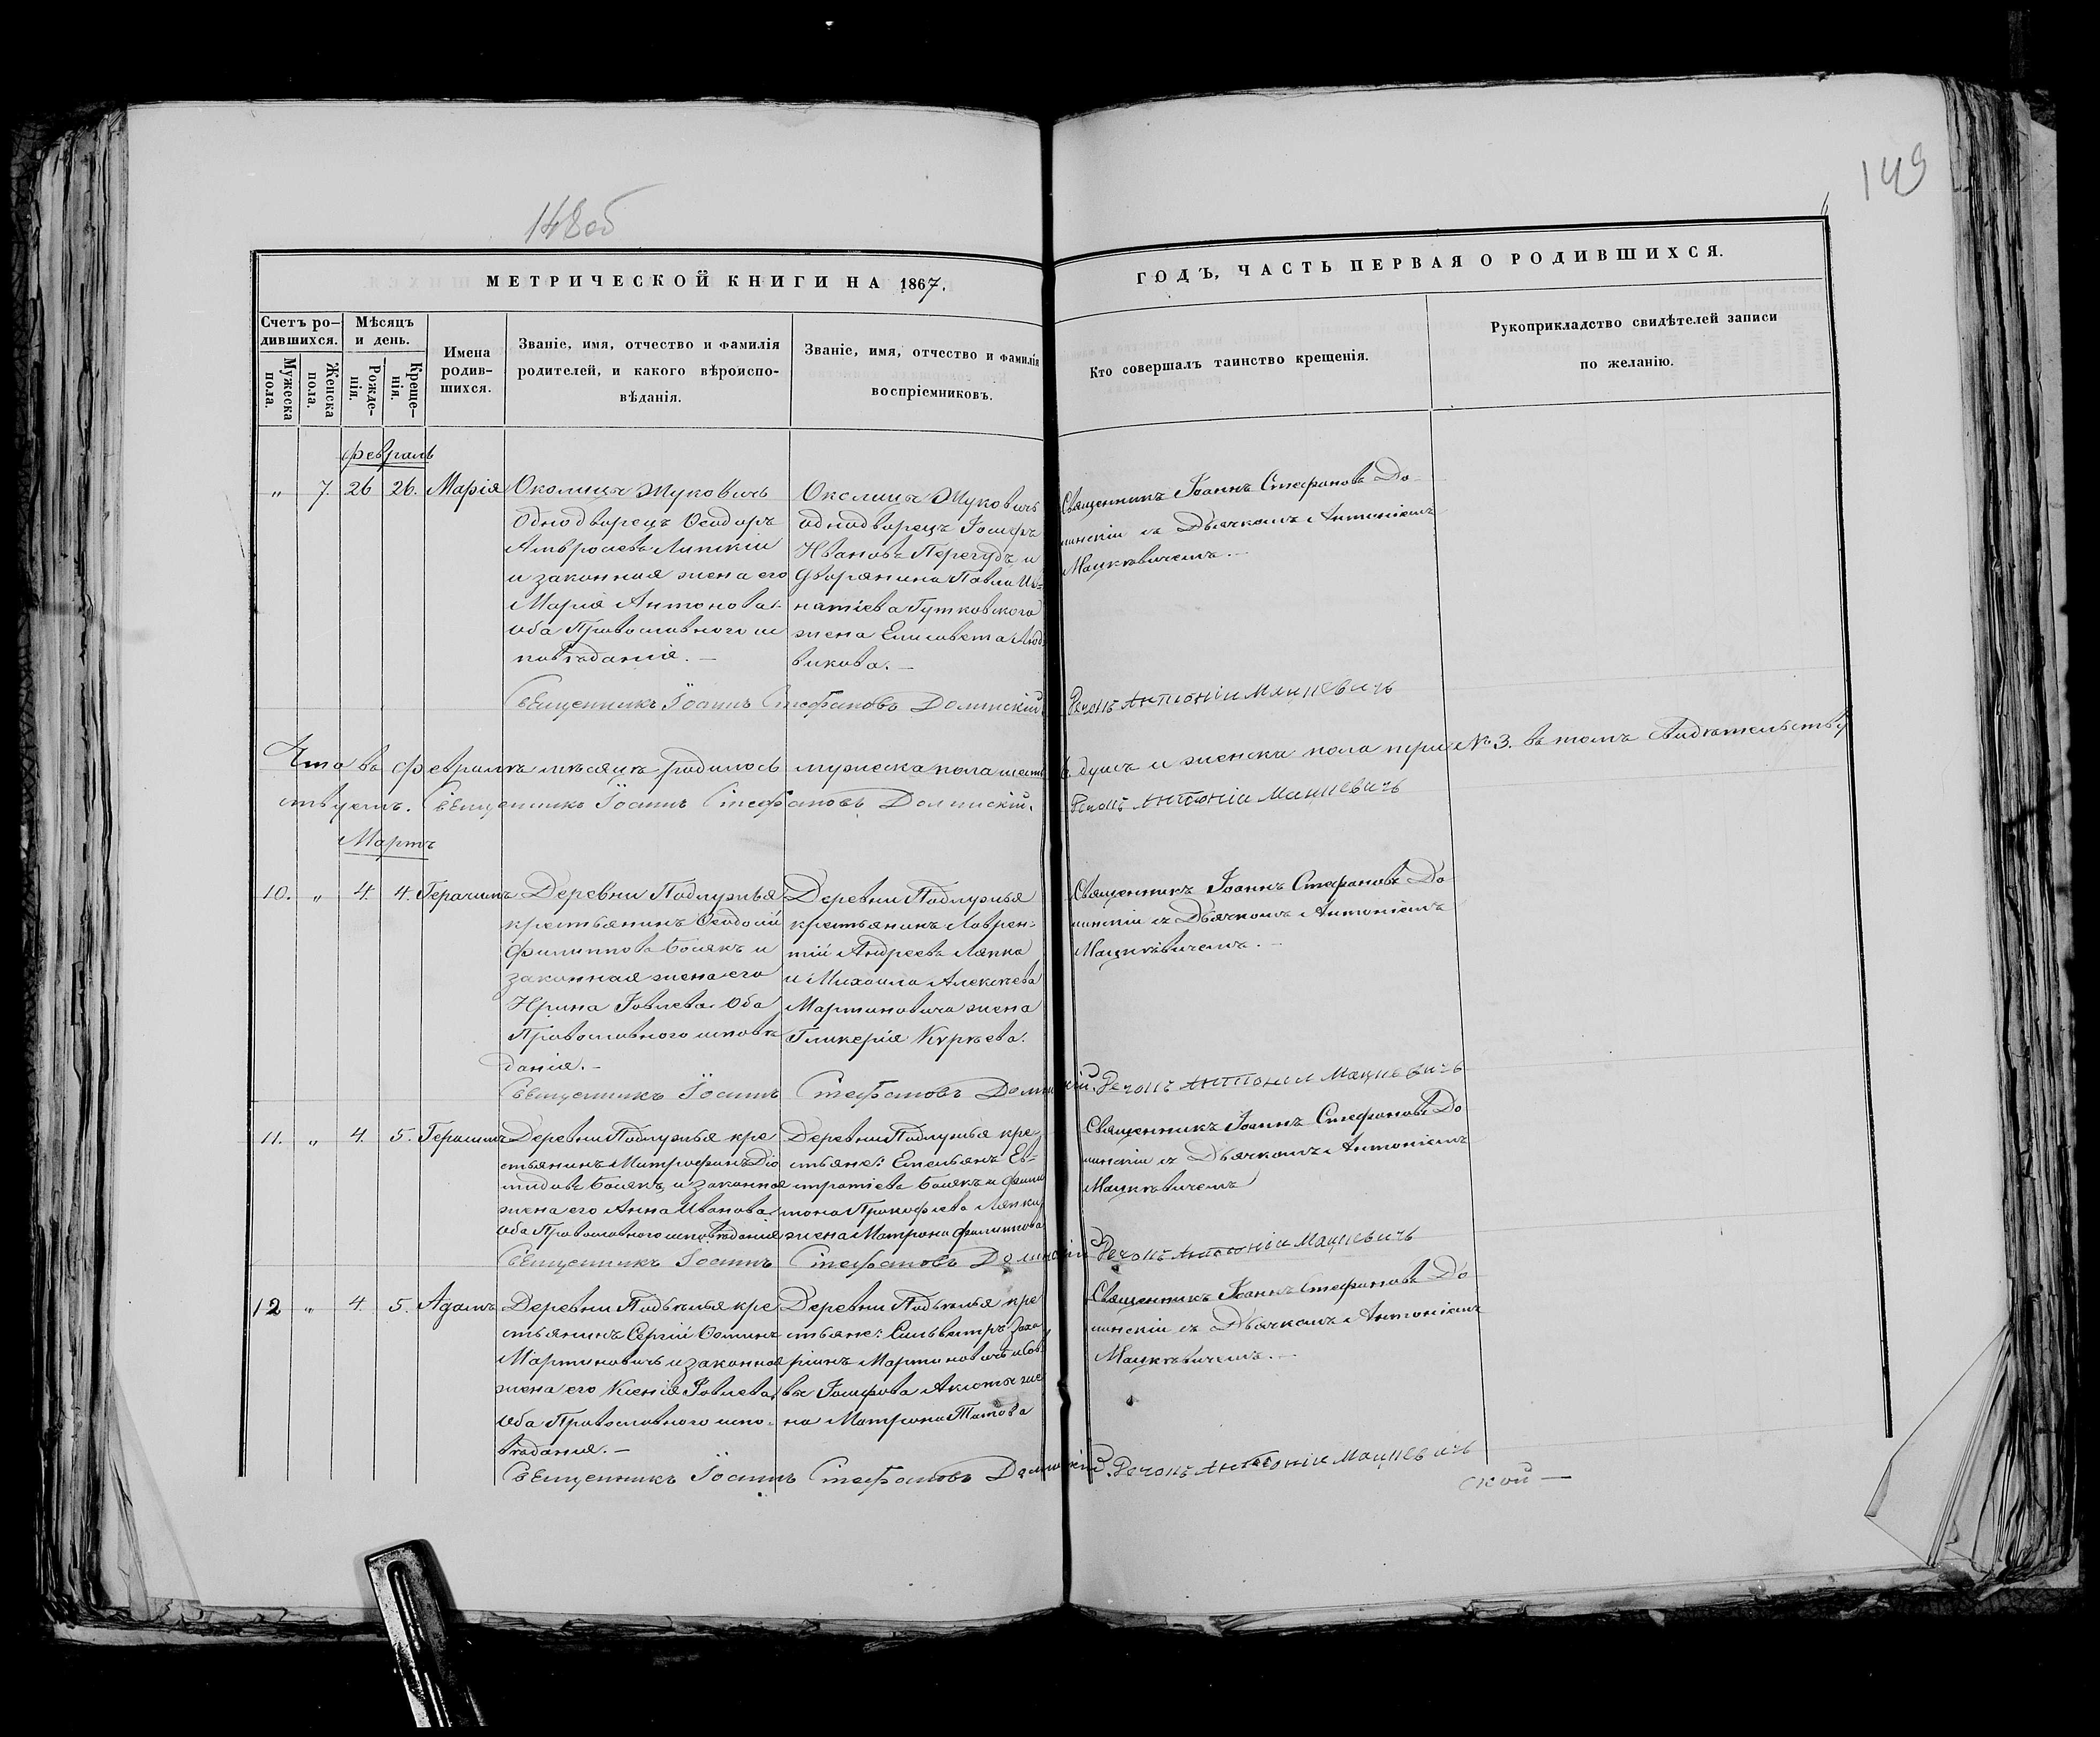 149
148об
МЕТРИЧЕСКОЙ КНИГИ НА 1867.
ГОДЪ, ЧАСТЬ ПЕРВАЯ О РОДИВШИХСЯ.
Счетъ ро-
дившихся.
Мужеска
пола.
Женска
пола.
Мѣсяцъ
и день.
Рожде-
нія.
Креще-
нія.
Имена
родив-
шихся.
Званіе, имя, отчество и фамилія
родителей, и какого вѣроиспо-
вѣданія.
Званіе, имя, отчество и фамилія
воспріемниковъ.
Кто совершалъ таинство крещенія.
Рукоприкладство свидѣтелей записи
по желанію.
Февраль
" 7. 26 26. Марія
Околицы Жуковичь
Однодворецъ Ѳеодоръ
Амвросіевъ Липскій
и законная жена его
Марія Антонова.
Оба Православнаго ис
повѣданія. —
Околицы Жуковичь
однодворецъ Іосифъ
Ивановъ Перегудъ и
дворянина Павла Иг=
натіева Гутковского
жена Елисавета Люд
викова. —
Священникъ Іоаннъ Стефановъ До-
минскій съ Дьячкомъ Антоніемъ
Мацкевичемъ. —
Священникъ Іоаннъ Стефановъ Доминскій.
Антоній Мацкевичъ
Что въ Февралѣ мѣсяцѣ родилось мужеска пола шесть 6. душъ и женска пола три № 3. въ томъ свидѣтельству
ствуемъ. Священникъ Іоаннъ Стефановъ Доминскій.
Антоній Мацкевичъ
Мартъ
10. " 4. 4. Герасимъ
Деревни Подлужья
крестьянинъ Ѳеодосій
Филипповъ Босякъ и
законная жена его
Ирина Іовлева. Оба
Православного исповѣ
данія. —
Деревни Подлужья
крестьянинъ Лаврен-
тій Андреевъ Ляпка
и Михаила Алексѣева
Мартиновича жена
Гликерія Кирѣева.
Священникъ Іоаннъ Стефановъ До
минскій съ Дьячкомъ Антоніемъ
Мацкевичемъ. —
Священникъ Іоаннъ Стефановъ Доминскій.
Антоній Мацкевичъ
11. " 4. 5. Герасимъ
Деревни Подлужья кре
стьянинъ Митрофанъ Діо
мидовъ Босякъ и законная
жена его Анна Иванова.
Оба Православного исповѣданія
Деревни Подлужья кре
стьяне: Емельянъ Ев=
стратіевъ Босякъ и Фили
мона Прокофіева Ляпки
жена Матрона Филиппова
Священникъ Іоаннъ Стефановъ До
минскій съ Дьячкомъ Антоніемъ
Мацкевичемъ
Священникъ Іоаннъ Стефановъ Доминскій
Антоній Мацкевичъ
12 " 4. 5. Адамъ
Деревни Подъѣлья кре
стьянинъ Сергій Ѳоминъ
Мартиновичъ и законная
жена его Ксенія Іовлева.
Оба Православного испо-
вѣданія. —
Деревни Подъѣлья кре
стьяне: Сильвестръ Заха
ріинъ Мартиновичъ и Сав
вы Іосифова жe
на Матрона Титова
Священникъ Іоаннъ Стефановъ До
минскій съ Дьячкомъ Антоніемъ
Мацкевичемъ. —
Священникъ Іоаннъ Стефановъ Доминскій.
Антоній Мацкевичъ
ской —